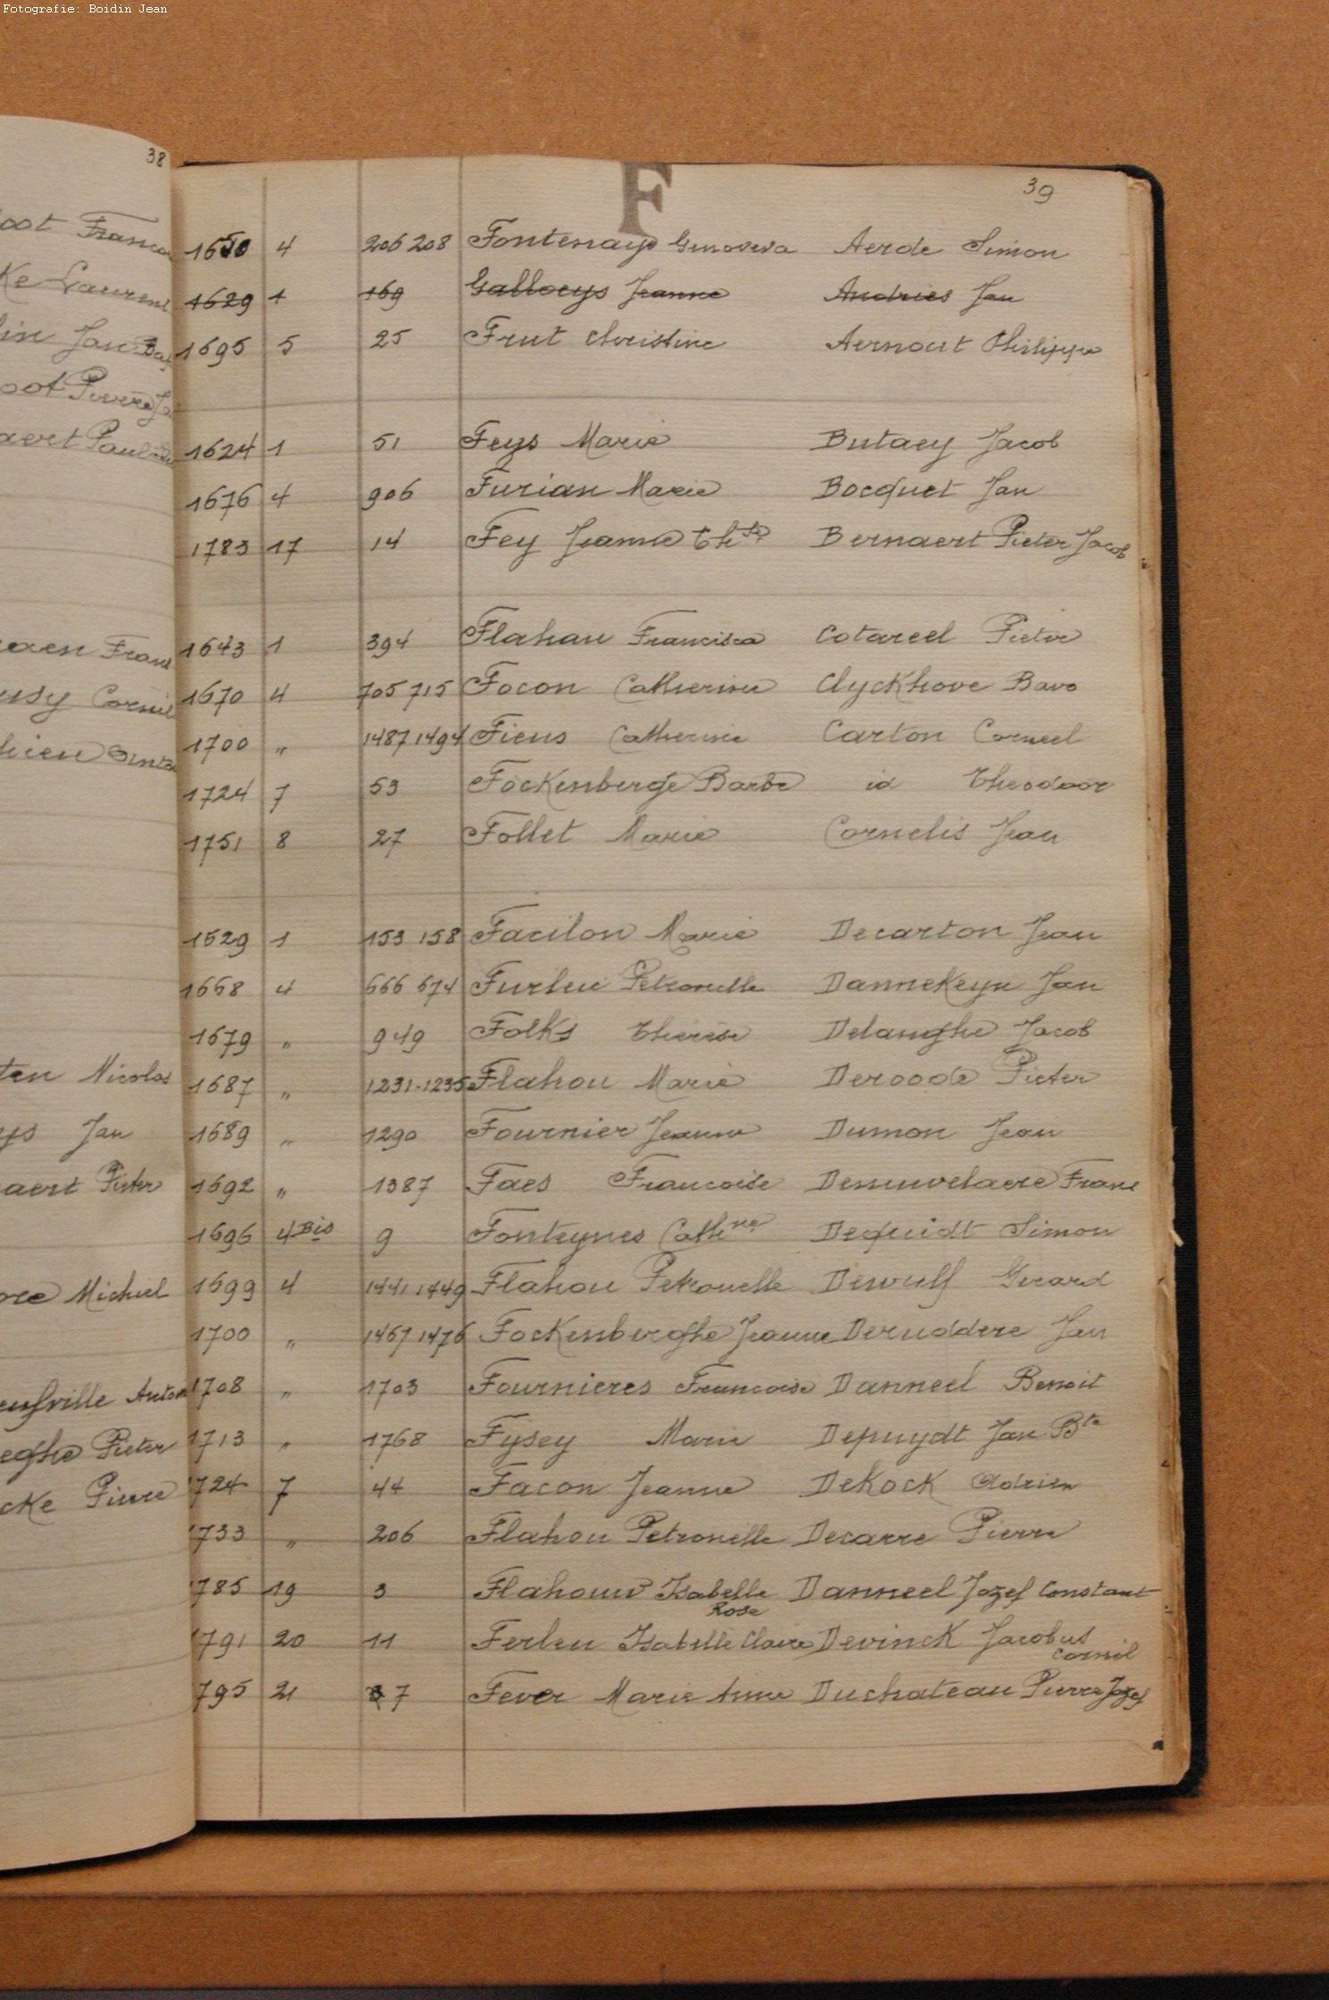 Fotografie: Boidin Jean
38
39
F
1650 4 206 208 Fontenays Genoveva Aerde Simon
1629 1 169 Galloeys Jeanne Andries Jan
1695 5 25 Frut Christine Aernout Philippe
1624 1 51 Feys Marie Butaey Jacob
1676 4 906 Furian Marie Bocquet Jan
1783 17 14 Fey Jeanne Bernaert Pieter Jacob
1643 1 394 Flahau Francisca Cotareel Pieter
1670 4 705 715 Focon Catherine Clyckhove Bavo
1700 " 1487 1494 Fiens Catherine Carton Corneel
1724 7 53 Fockenberge Barbe id Theodoor
1751 8 27 Follet Marie Cornelis Jean
1629 1 153 158 Facilon Marie Decarton Jean
1668 4 666 674 Furleu Petronelle Dannekeyn Jan
1679 " 949 Folks Therese Delanghe Jacob
1687 " 1231-1235 Flahou Marie Deroode Pieter
1689 " 1290 Fournier Jeanne Dumon Jean
1692 " 1387 Faes Francoise Franc
1696 4Bis 9 Fonteynes Cathne Dequidt Simon
1699 4 1441 1449 Flahou Petronelle Dewulf Gerard
1700 " 1467 1476 Fockenberghe Jeanne Deruddere Jan
1708 " 1703 Fournieres Francoise Danneel Benoit
1713 " 1768 Fysey Marie Depuydt Jan Bte
1724 7 44 Facon Jeanne DeKock Adrien
1733 " 206 Flahou Petronelle Decarre Pierre
1785 19 3 Flahouw Isabelle Danneel Jozef Constant
Rose
1791 20 11 Ferleu Isabelle Claire Devinck Jacobus
Cornil
1795 21 7 Fever Marie Anne Duchateau Pierre Jozef